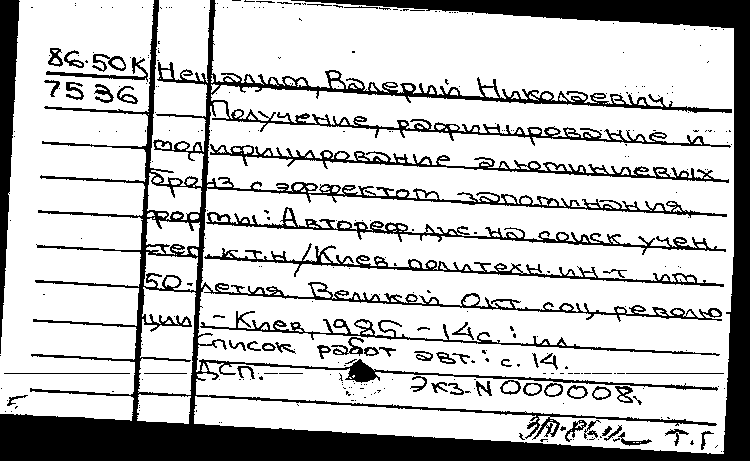 86-50К Нещадим, Валерий Николаевич.
7536
Получение, рафинирование и
модифицирование алюминиевых
бронз с эффектом запоминания
формы: Автореф. дис. на соиск. учен.
степ. к.т.н./Киев. политехн. ин-т им.
50-летия Великой Окт. соц. револю-
ции. - Киев, 1985. - 14с.: ил.
Список работ авт.: с. 14.
ДСП. Экз. N 000008.
Т.Г.